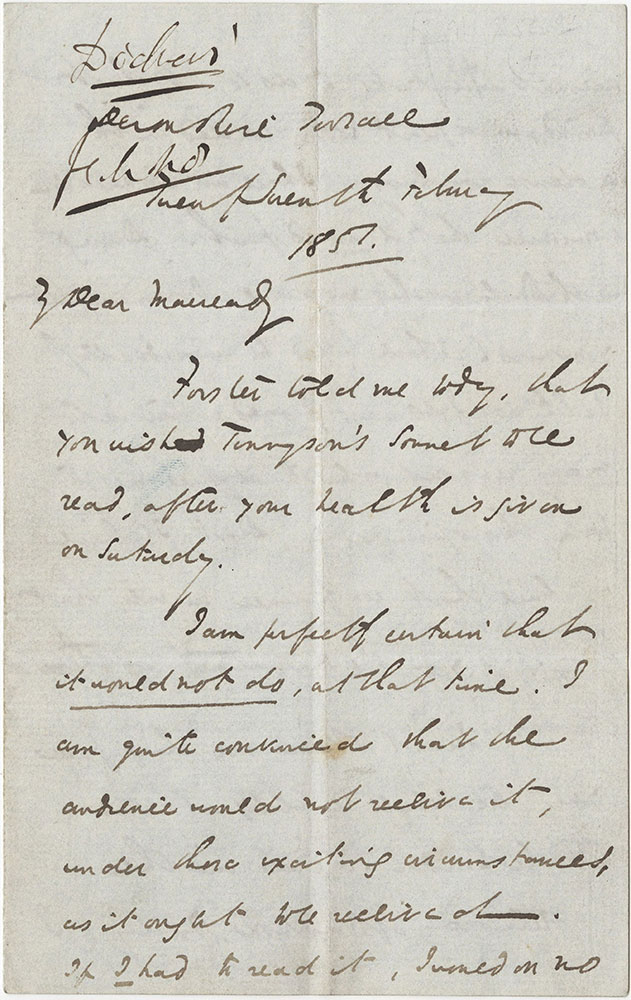 Dickens
Devonshire Terrace
Twenty Seventh February
1851.
My Dear Macready
Forster told me today, that
you wished Tennyson's Sonnet to be
read, after your health is given
on Saturday.
I am perfectly certain that
it would not do, at that time. I
am quite convinced that the
audience would not receive it,
under those exciting circumstances,
as it ought to be received.
If I had to read it, I would on no